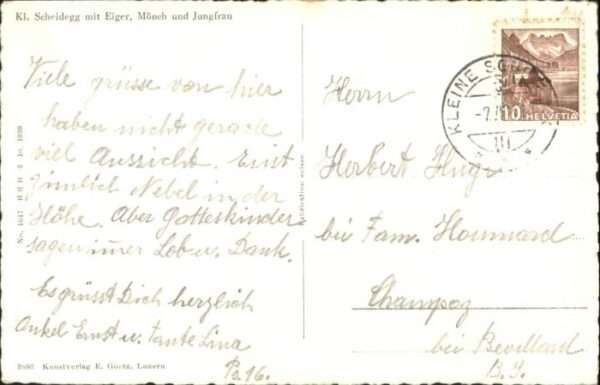 Kl. Scheidegg mit Eiger, Mönch und Jungfrau
Viele grüsse von hier
haben nicht gerade
viel Aussicht. Es ist
zimlich Nebel in der
Höhe. Aber Gotteskinder
sagen immer Lob u. Dank.
Es grüsst Dich herzlich
Onkel Ernst u. Tante Lina
Ps. 16.
No. 1617
Fabrication suisse
Kunstverlag E. Goetz, Luzern
KLEINE
10
HELVETIA
Herrn
Herbert Hug
bei Fam. Houmard
Champoz
bei Bevillard
B. J.